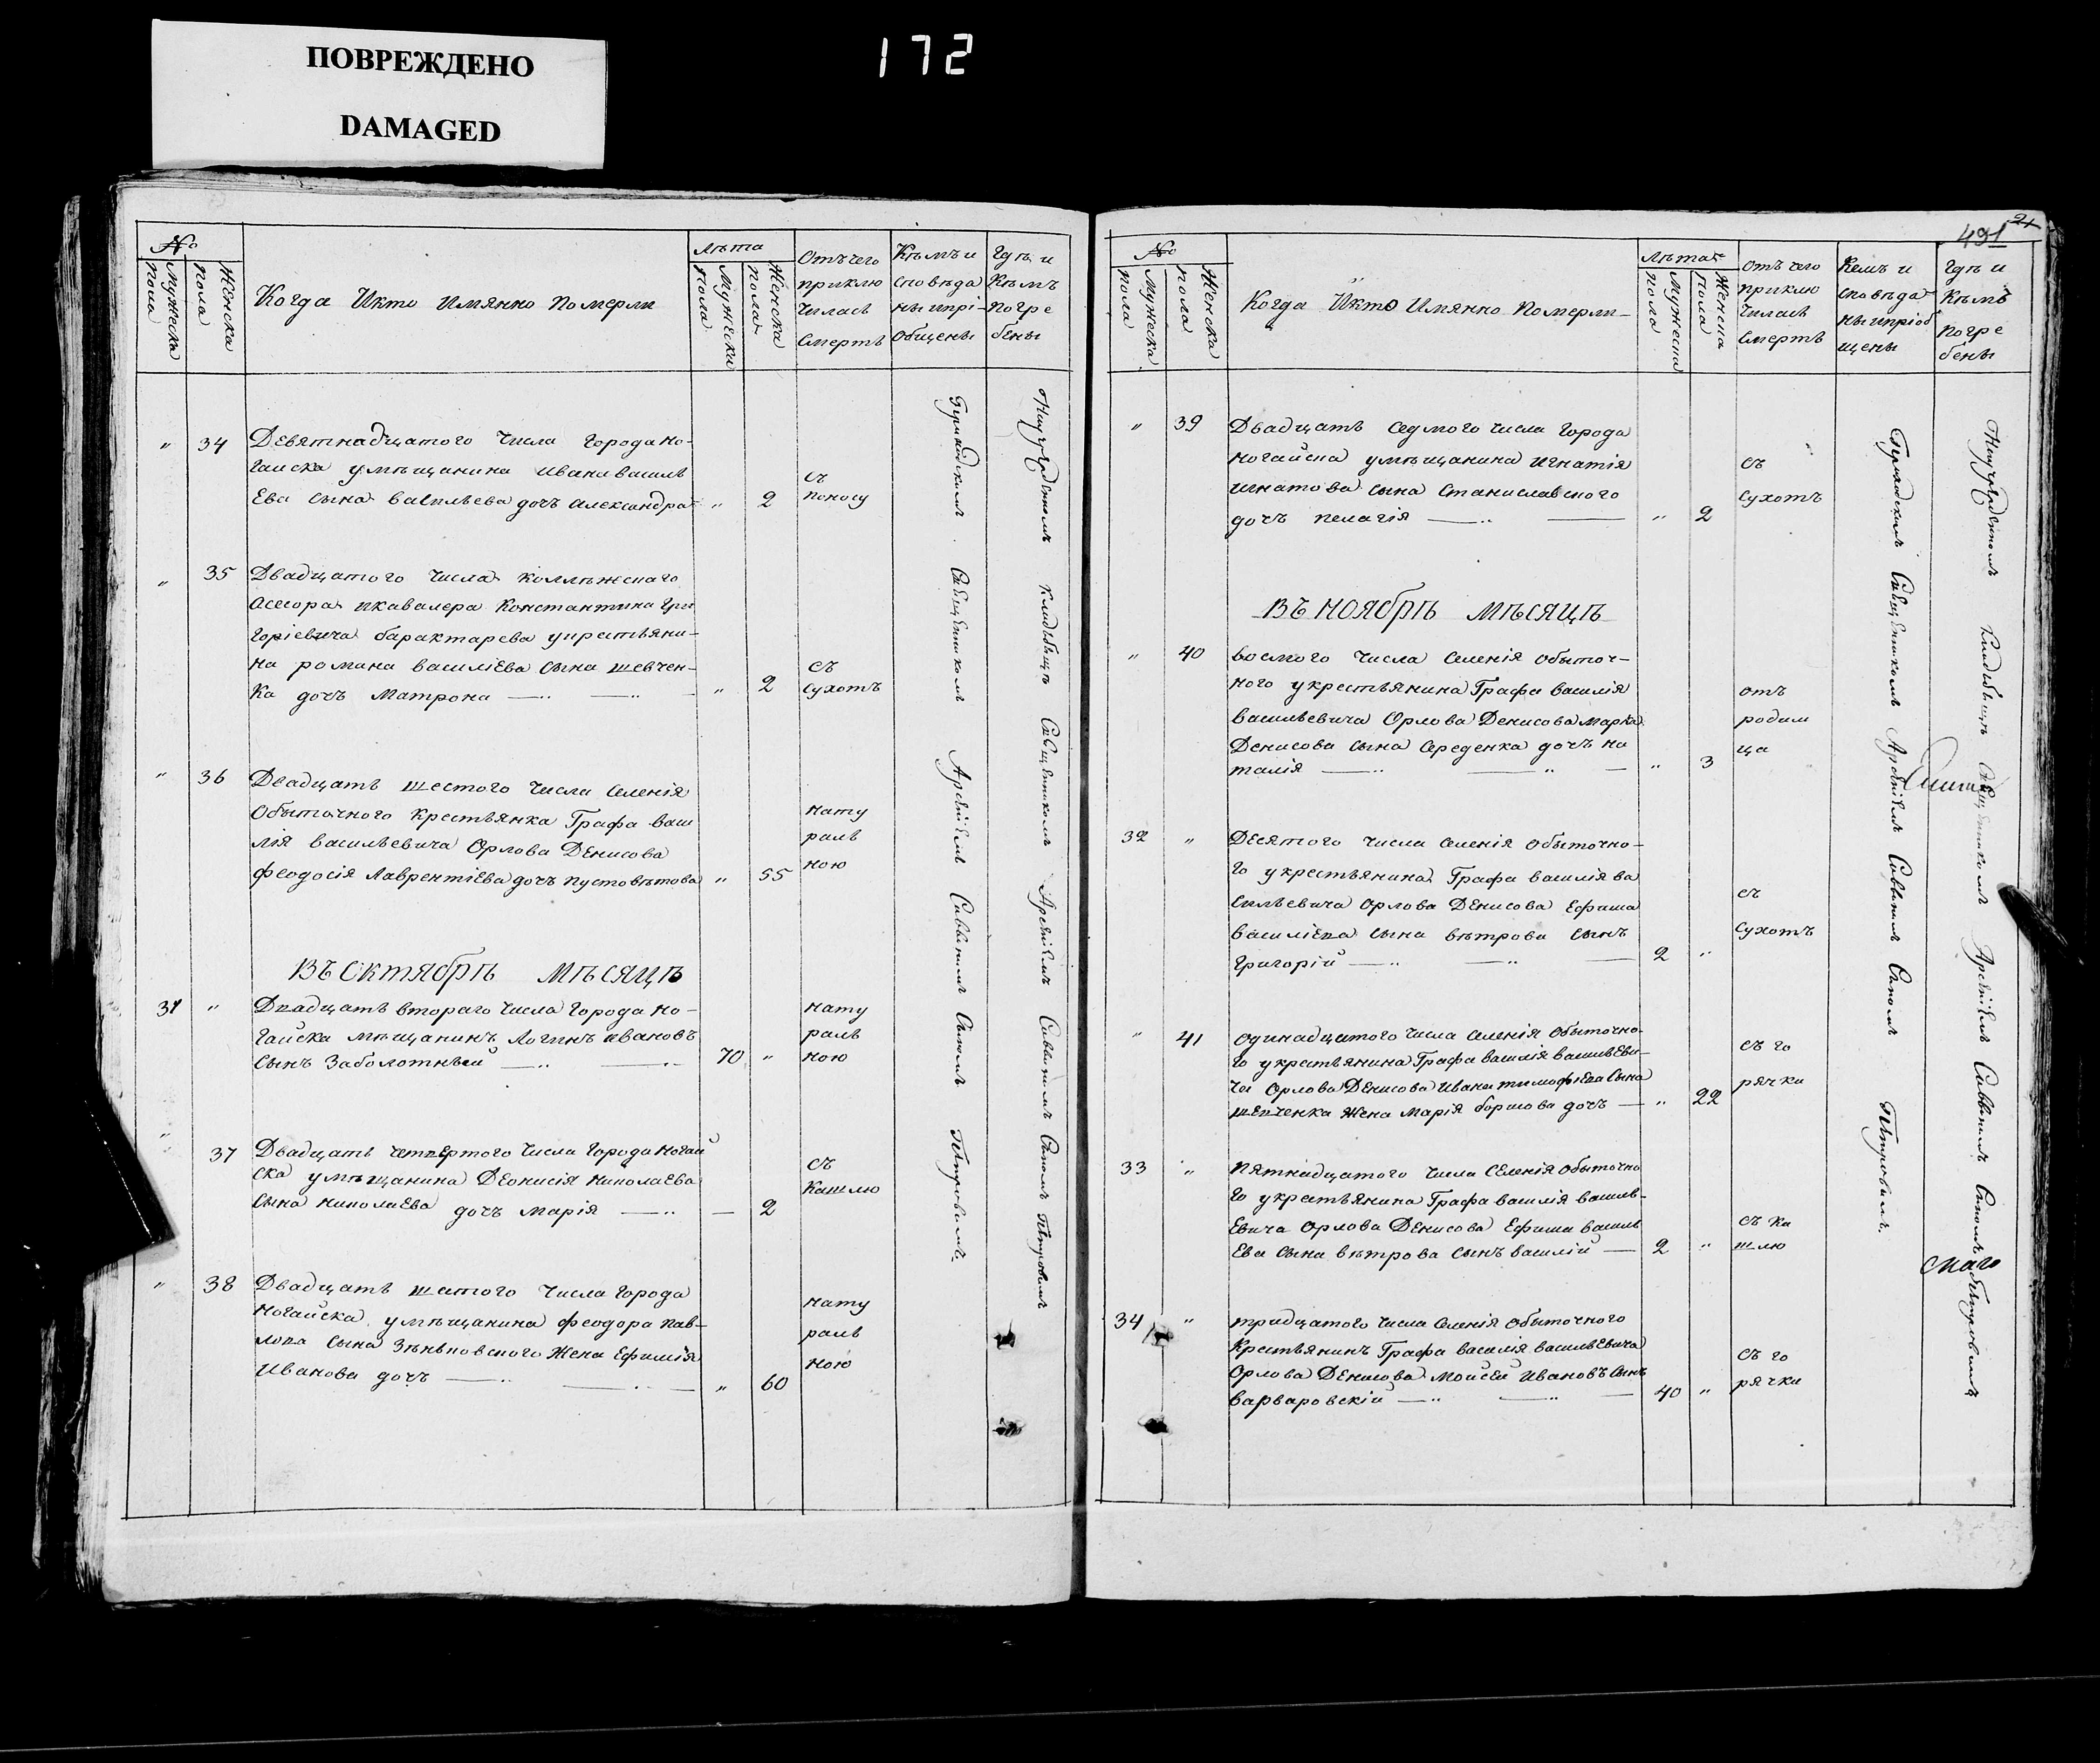 ПОВРЕЖДЕНО
DAMAGED
172
№
Мужеска пола
Женска пола
Когда Икто имянно померли
Лѣта
Мужеска пола
Женска пола
Отъ чего приклю чилась Смерть
Кѣмъ и сповѣда ны ипрі- Общены
Гдѣ и Кѣмъ погре бены
" 34 Девятнадцатого числа города но-
гайска умѣщанина ивана василь
Ева сына васильева дочь александра " 2
съ
поносу
" 35 Двадцатого числа коллѣжскаго
асесора икавалера Константина гри
горіевича барактарева укрестьяни-
на романа василіева сына шевчен-
ка дочь Матрона " 2
съ
сухотъ
" 36 Двадцать шестого числа селенія
Обыточного крестьянка Графа васи
лія васильевича Орлова Денисова
феодосія Лаврентіева дочь пустовѣтова " 55
нату
раль
ною
Въ Октябрѣ мѣсяцѣ
31 " Двадцать втораго числа города но-
гайска мѣщанинъ Логинъ ивановъ
сынъ Заболотнѣй 70 "
нату
раль
ною
" 37 Двадцать четвертого числа города ногай
ска умѣщанина Деонисія николаева
сына николаева дочь марія — 2
съ
кашлю
" 38 Двадцать шестого числа города
ногайска умѣщанина феодора пав-
лова сына Зѣньковского жена Ефимія
иванова дочь " 60
нату
раль
ною
Священникомъ Арсеніемъ Саввинымъ Петровымъ
491
21
№
Мужеска пола
Женска пола
Когда Икто Имянно померли
Лѣта
Мужеска пола
Женска пола
Отъ чего приклю чилась смерть
Кемъ и сповѣда ны ипріоб щены
Гдѣ и Кѣмъ погре бены
" 39 Двадцать седмого числа города
ногайска умѣщанина игнатія
игнатова сына станиславского
дочь пелагія " 2
съ
сухотъ
Въ ноябрѣ мѣсяцѣ
" 40 восмого числа селенія обыточ-
ного укрестьянина Графа василія
васильевича Орлова Денисова марка
Денисова сына середенка дочь на
талія " 3
отъ
родим
ца
32 " Десятого числа селенія обыточно-
го укрестьянина Графа василія ва
сильевича Орлова Денисова Ефима
василіева сына вѣтрова сынъ
григорій 2 "
съ
сухотъ
" 41 одинадцатого числа селенія обыточно-
го укрестьянина Графа василія василь Еви-
ча Орлова Денисова ивана тимофѣева сына
шевченка жена марія борисова дочь " 22
съ го
рячки
33 " пятнадцатого числа селенія обыточно
го укрестьянина Графа василія василь-
Евича Орлова Денисова Ефима василь
Ева сына вѣтрова сынъ василій 2 "
съ ка
шлю
34 " тридцатого числа селенія обыточного
крестьянинъ Графа василія васильевича
Орлова Денисова Моисей ивановъ сынъ
варваровскій 40 "
съ го
рячки
Священникомъ Арсеніемъ Саввинымъ Петровымъ
скаго